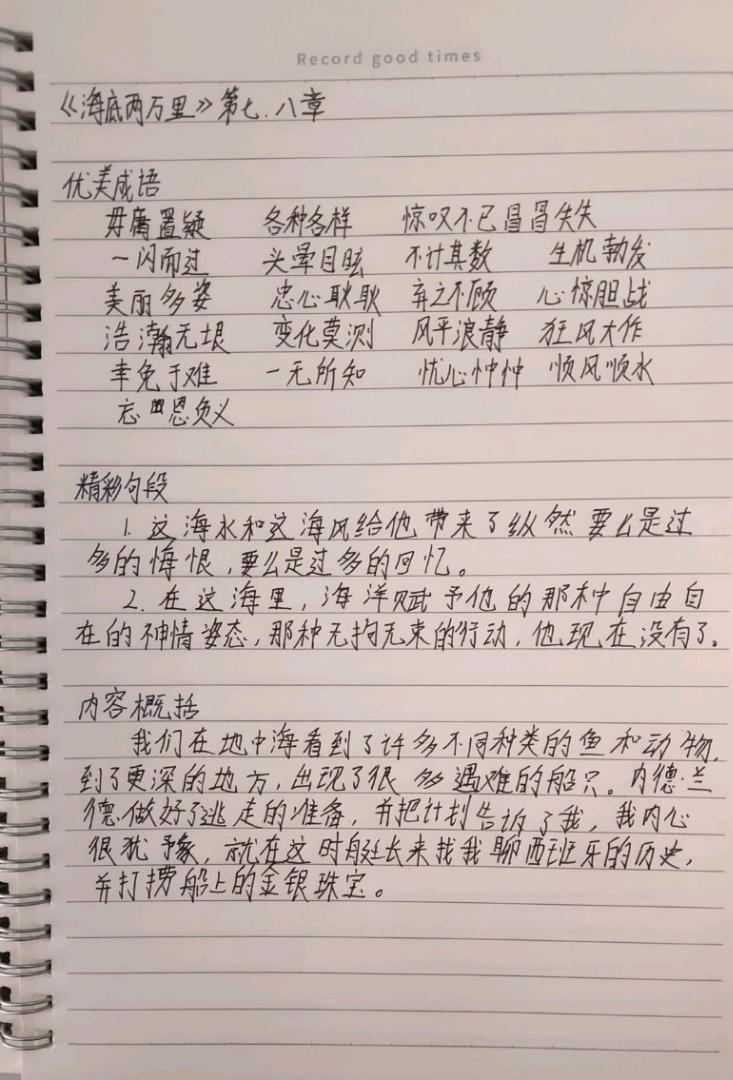 Record good times
《海底两万里》第七.八章
优美成语
毋庸置疑 各种各样 惊叹不已 冒冒失失
一闪而过 头晕目眩 不计其数 生机勃发
美丽多姿 忠心耿耿 弃之不顾 心惊胆战
浩瀚无垠 变化莫测 风平浪静 狂风大作
幸免于难 一无所知 忧心忡忡 顺风顺水
忘恩负义
精彩句段
1. 这海水和这海风给他带来了纵然要么是过
多的悔恨,要么是过多的回忆。
2. 在这海里,海洋赋予他的那种自由自
在的神情姿态,那种无拘无束的行动,他现在没有了。
内容概括
我们在地中海看到了许多不同种类的鱼和动物,
到了更深的地方,出现了很多遇难的船只。内德·兰
德做好了逃走的准备,并把计划告诉了我,我内心
很犹豫,就在这时艇长来找我聊西班牙的历史,
并打捞船上的金银珠宝。